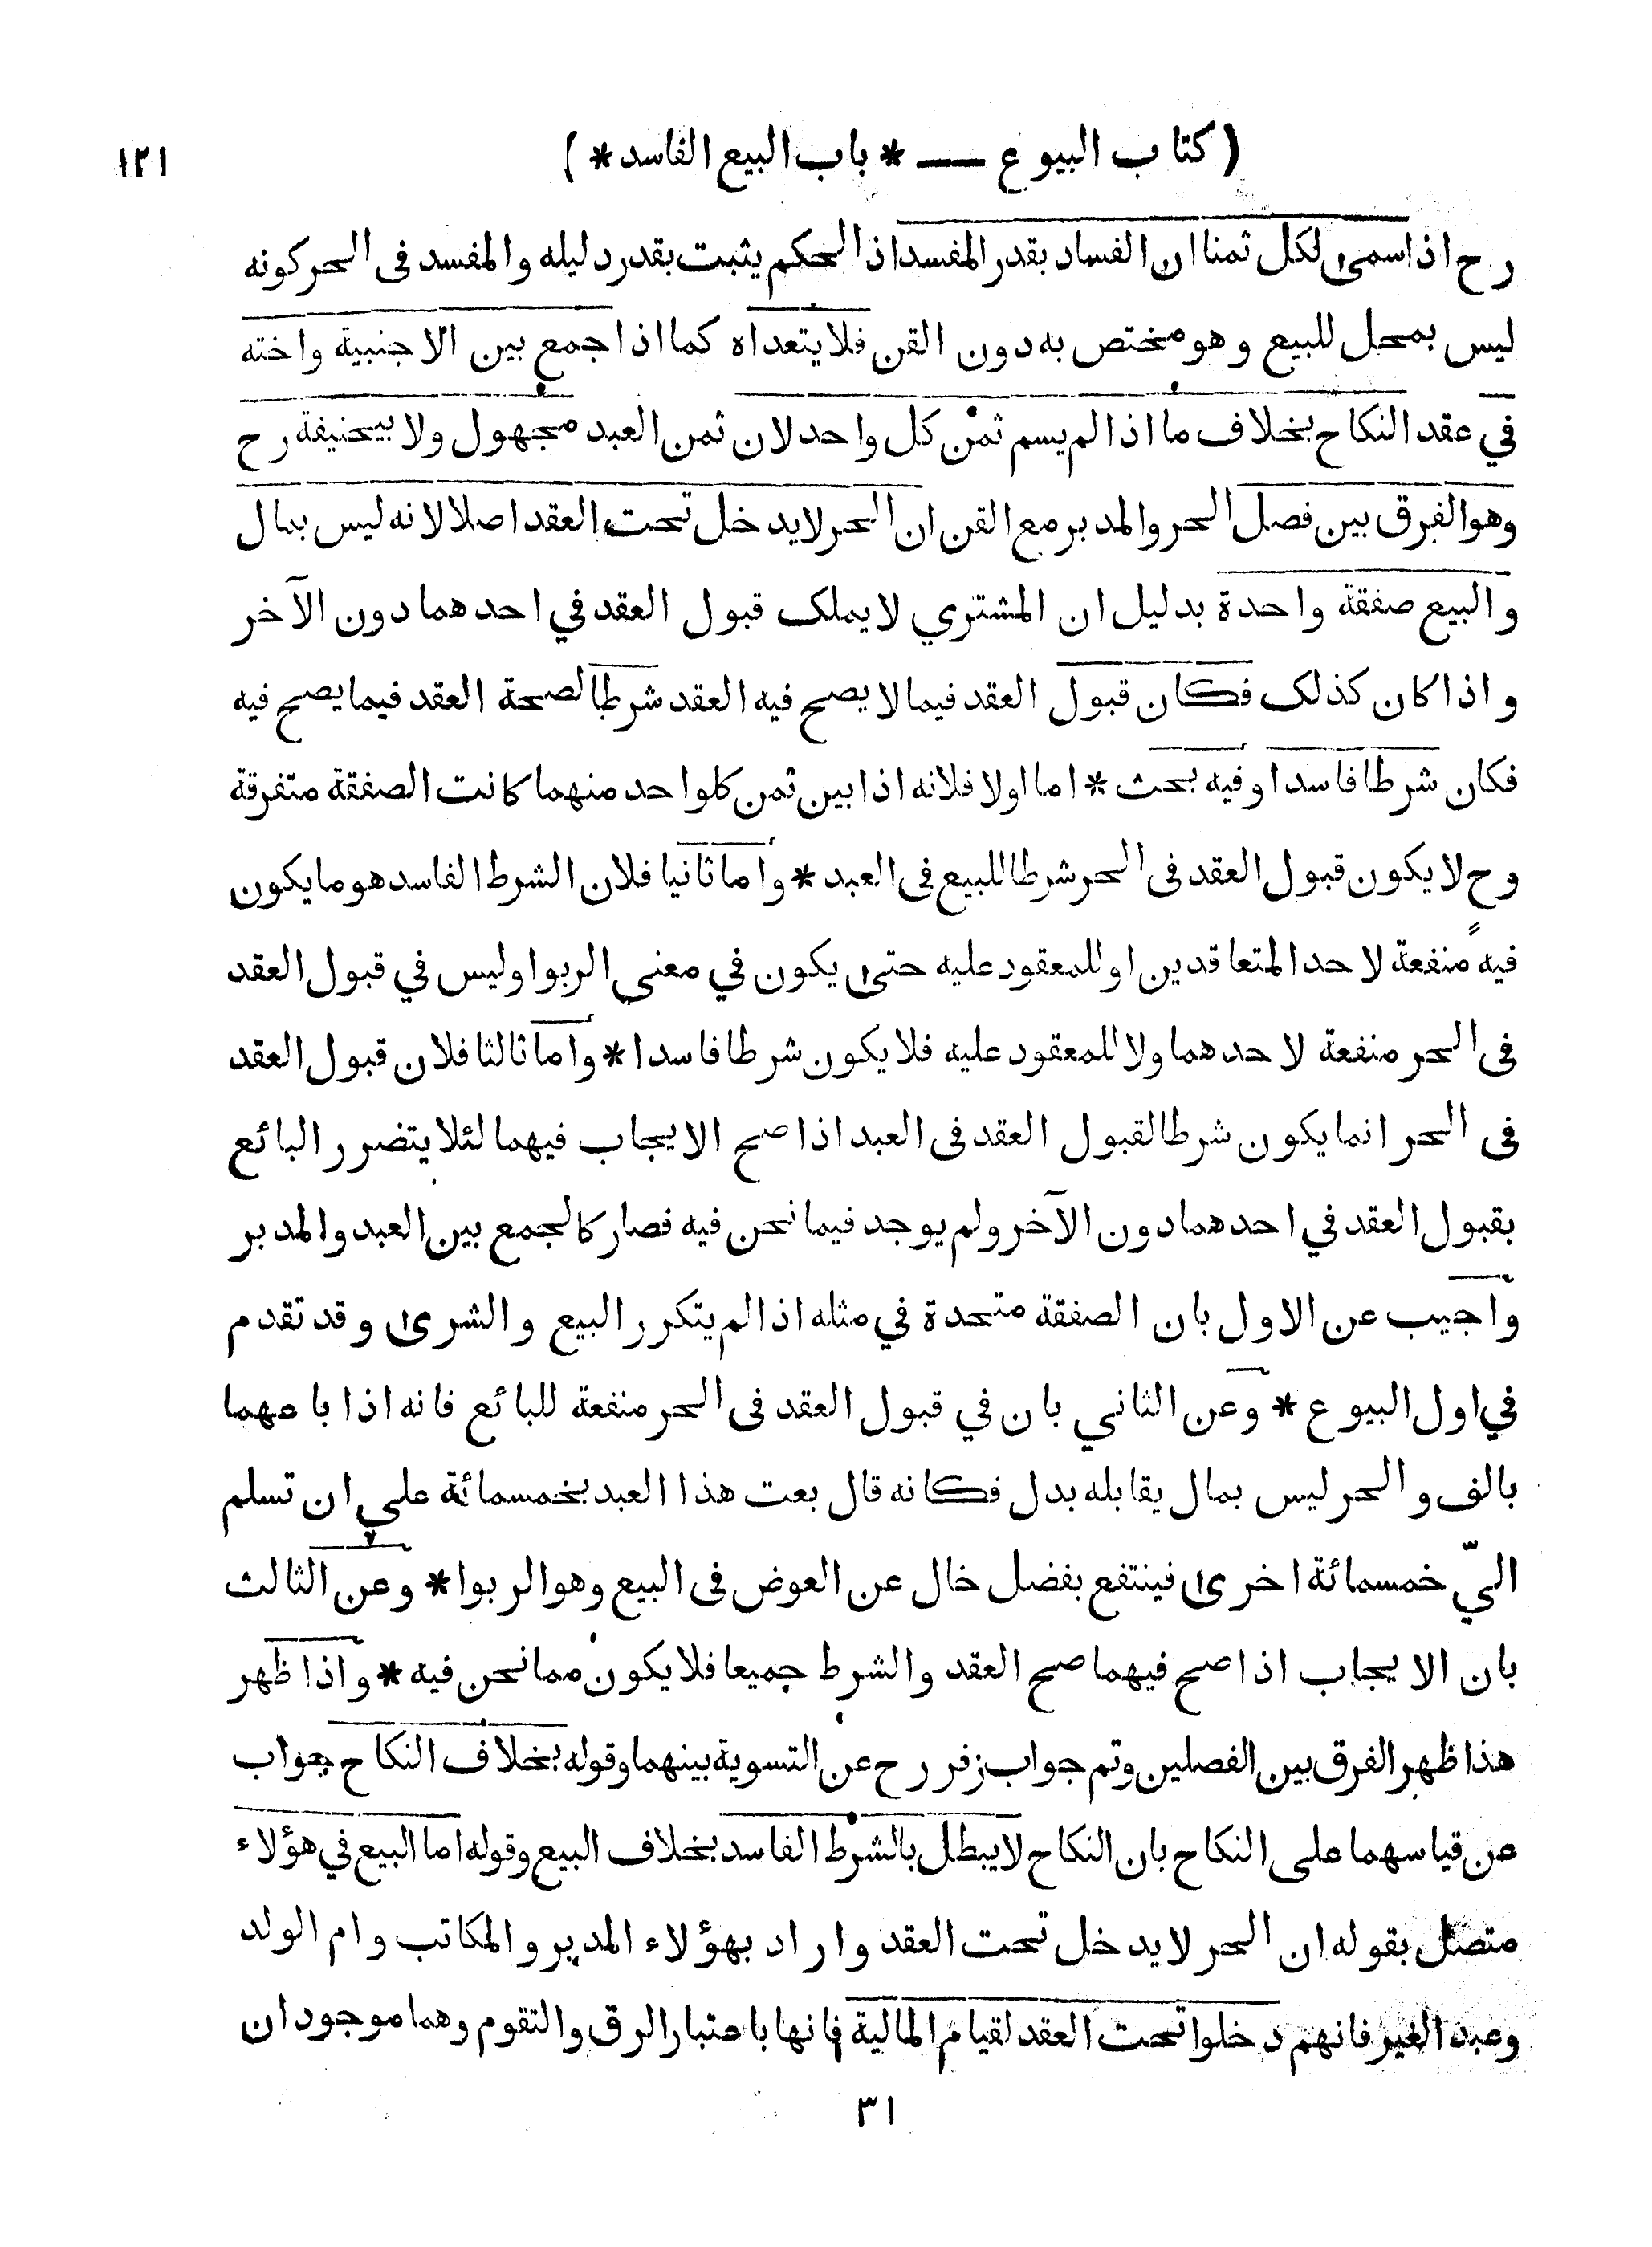 ( كتاب البيوع — * باب البيع الفاسد * )
١٢١
رح اذا سمىٰ لكل ثمنا ان الفساد بقدر المفسد اذ الحكم يثبت بقدر دليله والمفسد فى الحر كونه
ليس بمحل للبيع وهو مختص به دون القن فلا يتعداه كما اذا جمع بين الاجنبية واخته
في عقد النكاح بخلاف ما اذا لم يسم ثمن كل واحد لان ثمن العبد مجهول ولا بيحنيفة رح
وهو الفرق بين فصل الحر والمدبر مع القن ان الحر لا يدخل تحت العقد اصلا لانه ليس بمال
والبيع صفقة واحدة بدليل ان المشتري لا يملك قبول العقد في احدهما دون الآخر
واذا كان كذلك فكان قبول العقد فيما لا يصح فيه العقد شرطا لصحة العقد فيما يصح فيه
فكان شرطا فاسدا وفيه بحث * اما اولا فلانه اذا بين ثمن كلواحد منهما كانت الصفقة متفرقة
وح لا يكون قبول العقد فى الحر شرطا للبيع فى العبد * واما ثانيا فلان الشرط الفاسد هو ما يكون
فيه منفعة لاحد المتعاقدين او للمعقود عليه حتىٰ يكون في معنى الربوا وليس في قبول العقد
فى الحر منفعة لاحدهما ولا للمعقود عليه فلا يكون شرطا فاسدا * واما ثالثا فلان قبول العقد
فى الحر انما يكون شرطا لقبول العقد فى العبد اذا صح الايجاب فيهما لئلا يتضرر البائع
بقبول العقد في احدهما دون الآخر ولم يوجد فيما نحن فيه فصار كالجمع بين العبد والمدبر
واجيب عن الاول بان الصفقة متحدة في مثله اذا لم يتكرر البيع والشرىٰ وقد تقدم
في اول البيوع * وعن الثاني بان في قبول العقد فى الحر منفعة للبائع فانه اذا باعهما
بالف والحر ليس بمال يقابله بدل فكانه قال بعت هذا العبد بخمسمائة علي ان تسلم
اليّ خمسمائة اخرىٰ فينتفع بفضل خال عن العوض فى البيع وهو الربوا * وعن الثالث
بان الايجاب اذا صح فيهما صح العقد والشرط جميعا فلا يكون مما نحن فيه * واذا ظهر
هذا ظهر الفرق بين الفصلين وتم جواب زفر رح عن التسوية بينهما وقوله بخلاف النكاح جواب
عن قياسهما على النكاح بان النكاح لا يبطل بالشرط الفاسد بخلاف البيع وقوله اما البيع في هؤلاء
متصل بقوله ان الحر لا يدخل تحت العقد واراد بهؤلاء المدبر والمكاتب وام الولد
وعبد الغير فانهم دخلوا تحت العقد لقيام المالية فانها باعتبار الرق والتقوم وهما موجودان
٣١